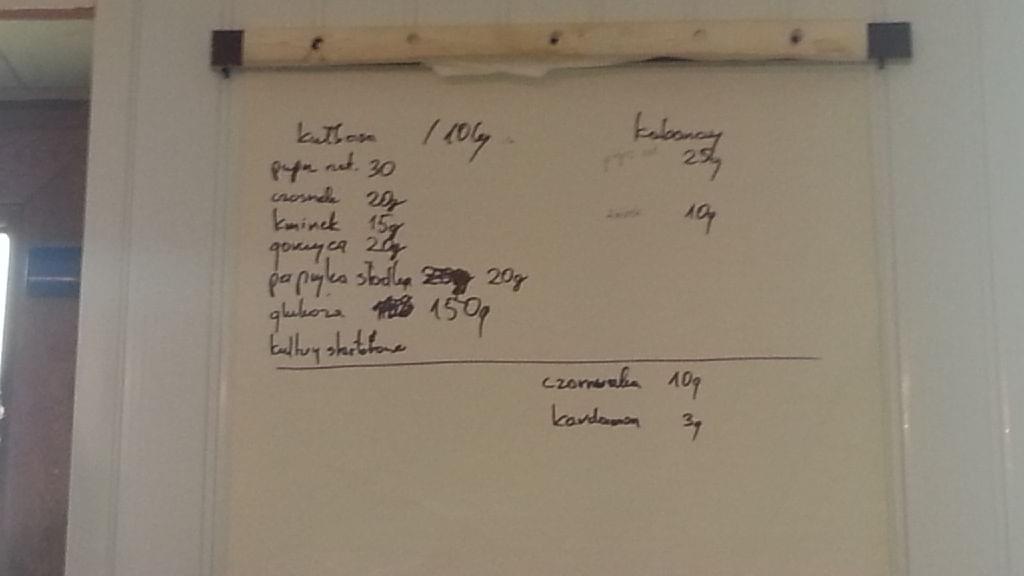 kiełbasa /10kg kabanosy
pieprz nat. 30 25g
czosnek 20g
kminek 15g 10g
gorczyca 20g
papryka słodka 20g
glukoza 150g
kultury startowe
czarnuszka 10g
kardamon 3g